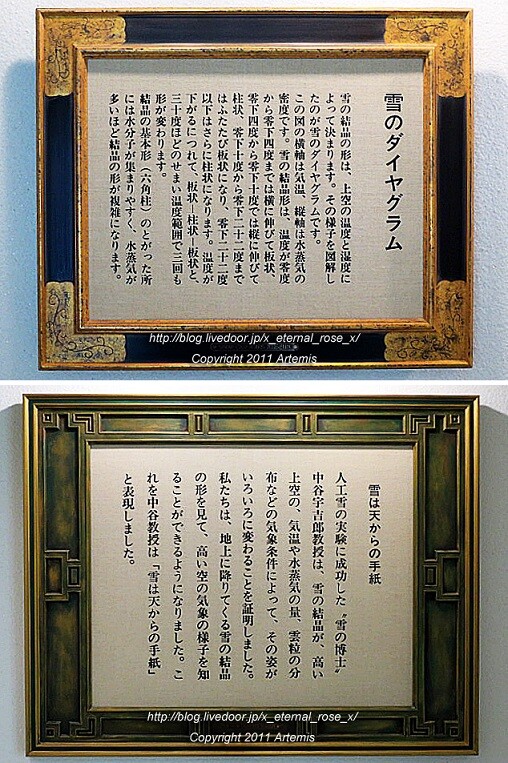 雪のダイヤグラム
雪の結晶の形は、上空の温度と湿度に
よって決まります。その様子を図解し
たのが雪のダイヤグラムです。
この図の横軸は気温、縦軸は水蒸気の
密度です。雪の結晶形は、温度が零度
から零下四度までは横に伸びて板状、
零下四度から零下十度では縦に伸びて
柱状、零下十度から零下二十二度まで
はふたたび板状になり、零下二十二度
以下はさらに柱状になります。温度が
下がるにつれて、板状―柱状―板状と、
三十度ほどのせまい温度範囲で三回も
形が変わります。
結晶の基本形（六角柱）のとがった所
には水分子が集まりやすく、水蒸気が
多いほど結晶の形が複雑になります。
http://blog.livedoor.jp/x_eternal_rose_x/
Copyright 2011 Artemis
雪は天からの手紙
人工雪の実験に成功した〝雪の博士〟
中谷宇吉郎教授は、雪の結晶が、高い
上空の、気温や水蒸気の量、雲粒の分
布などの気象条件によって、その姿が
いろいろに変わることを証明しました。
私たちは、地上に降りてくる雪の結晶
の形を見て、高い空の気象の様子を知
ることができるようになりました。こ
れを中谷教授は「雪は天からの手紙」
と表現しました。
http://blog.livedoor.jp/x_eternal_rose_x/
Copyright 2011 Artemis